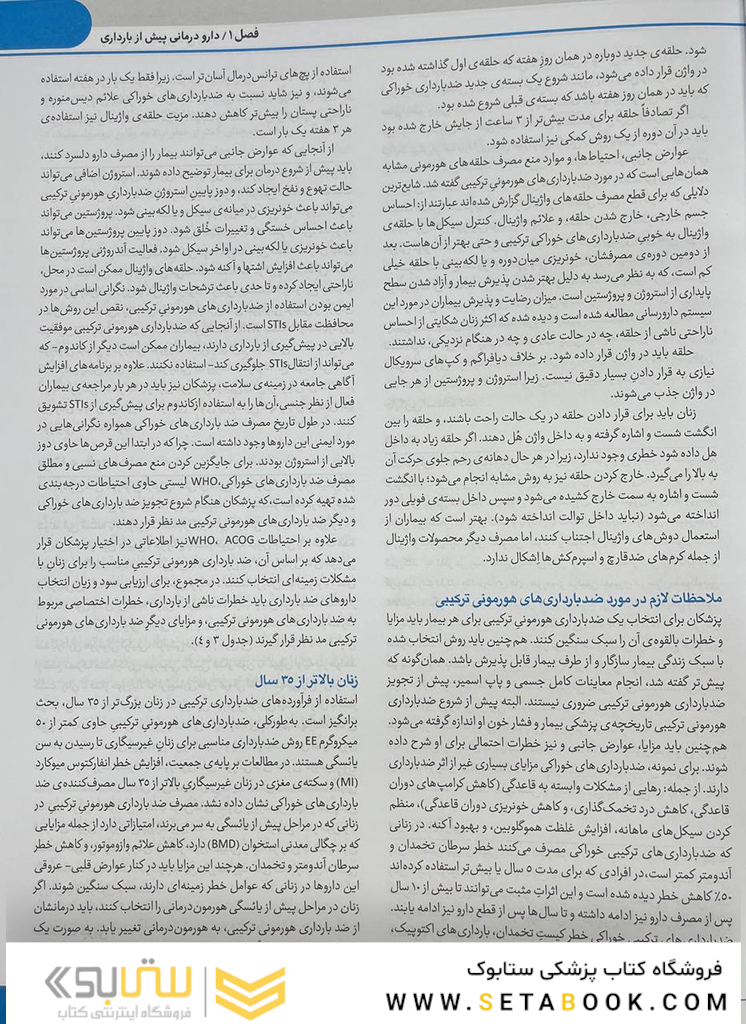 فصل ۱/ دارو درمانی پیش از بارداری
شود. حلقه‌ی جدید دوباره در همان روز هفته که حلقه‌ی اول گذاشته شده بود
در واژن قرار داده می‌شود، مانند شروع یک بسته‌ی جدید ضدبارداری خوراکی
که باید در همان روز هفته باشد که بسته‌ی قبلی شروع شده بود.
اگر تصادفاً حلقه برای مدت بیش‌تر از ۳ ساعت از جایش خارج شده بود
باید در آن دوره از یک روش کمکی نیز استفاده شود.
عوارض جانبی، احتیاط‌ها، و موارد منع مصرف حلقه‌های هورمونی مشابه
همان‌هایی است که در مورد ضدبارداری‌های هورمونیِ ترکیبی گفته شد. شایع‌ترین
دلایلی که برای قطع مصرف حلقه‌های واژینال گزارش شده‌اند عبارتند از: احساس
جسم خارجی، خارج شدن حلقه، و علائم واژینال. کنترل سیکل‌ها با حلقه‌ی
واژینال به خوبیِ ضدبارداری‌های خوراکی ترکیبی و حتی بهتر از آن‌هاست. بعد
از دومین دوره‌ی مصرفشان، خونریزی میان‌دوره و یا لکه‌بینی با حلقه خیلی
کم است، که به نظر می‌رسد به دلیل بهتر شدن پذیرش بیمار و آزاد شدن سطح
پایداری از استروژن و پروژستین است. میزان رضایت و پذیرش بیماران در مورد این
سیستم دارورسانی مطالعه شده است و دیده شده که اکثر زنان شکایتی از احساس
ناراحتی ناشی از حلقه، چه در حالت عادی و چه در هنگام نزدیکی، نداشتند.
حلقه باید در واژن قرار داده شود. بر خلاف دیافراگم و کپ‌های سرویکال
نیازی به قرار دادنِ بسیار دقیق نیست. زیرا استروژن و پروژستین از هر جایی
در واژن جذب می‌شوند.
زنان باید برای قرار دادن حلقه در یک حالت راحت باشند، و حلقه را بین
انگشت شست و اشاره گرفته و به داخل واژن هُل دهند. اگر حلقه زیاد به داخل
هل داده شود خطری وجود ندارد، زیرا در هر حال دهانه‌ی رحم جلوی حرکت آن
به بالا را می‌گیرد. خارج کردن حلقه نیز به روش مشابه انجام می‌شود؛ با انگشت
شست و اشاره به سمت خارج کشیده می‌شود و سپس داخل بسته‌ی فویلی دور
انداخته می‌شود (نباید داخل توالت انداخته شود). بهتر است که بیماران از
استعمال دوش‌های واژینال اجتناب کنند، اما مصرف دیگر محصولات واژینال
از جمله کرم‌های ضدقارچ و اسپرم‌کش‌ها اِشکال ندارد.
ملاحظات لازم در مورد ضدبارداری‌های هورمونی ترکیبی
پزشکان برای انتخاب یک ضدبارداری هورمونیِ ترکیبی برای هر بیمار باید مزایا
و خطرات بالقوه‌ی آن را سبک سنگین کنند. هم‌چنین باید روش انتخاب شده
با سبک زندگی بیمار سازگار و از طرف بیمار قابل پذیرش باشد. همان‌گونه که
پیش‌تر گفته شد، انجام معاینات کامل جسمی و پاپ اسمیر، پیش از تجویز
ضدبارداری هورمونی ترکیبی ضروری نیستند. البته پیش از شروع ضدبارداری
هورمونی ترکیبی تاریخچه‌ی پزشکی بیمار و فشار خون او اندازه گرفته می‌شود.
هم‌چنین باید مزایا، عوارض جانبی و نیز خطرات احتمالی برای او شرح داده
شوند. برای نمونه، ضدبارداری‌های خوراکی مزایای بسیاری غیر از اثر ضدبارداری
دارند. از جمله: رهایی از مشکلات وابسته به قاعدگی (کاهش کرامپ‌های دوران
قاعدگی، کاهش درد تخمک‌گذاری، و کاهش خونریزی دوران قاعدگی)، منظم
کردن سیکل‌های ماهانه، افزایش غلظت هموگلوبین، و بهبود آکنه. در زنانی
که ضدبارداری‌های ترکیبی خوراکی مصرف می‌کنند خطر سرطان تخمدان و
آندومتر کمتر است، در افرادی که برای مدت ۵ سال یا بیش‌تر استفاده کرده‌اند
۵۰٪ کاهش خطر دیده شده است و این اثراتِ مثبت می‌توانند تا بیش از ۱۰ سال
پس از مصرف دارو نیز ادامه داشته و تا سال‌ها پس از قطع دارو نیز ادامه یابند.
ضدبارداری‌های ترکیبی خوراکی خطر کیستِ تخمدان، بارداری‌های اکتوپیک،
استفاده از پچ‌های ترانس‌درمال آسان‌تر است. زیرا فقط یک بار در هفته استفاده
می‌شوند، و نیز شاید نسبت به ضدبارداری‌های خوراکی علائم دیس‌منوره و
ناراحتی پستان را بیش‌تر کاهش دهند. مزیت حلقه‌ی واژینال نیز استفاده‌ی
هر ۳ هفته یک بار است.
از آنجایی که عوارض جانبی می‌توانند بیمار را از مصرف دارو دلسرد کنند،
باید پیش از شروع درمان برای بیمار توضیح داده شوند. استروژن اضافی می‌تواند
حالت تهوع و نفخ ایجاد کند، و دوز پایینِ استروژنِ ضدبارداریِ هورمونیِ ترکیبی
می‌تواند باعث خونریزی در میانه‌ی سیکل و یا لکه‌بینی شود. پروژستین می‌تواند
باعث احساس خستگی و تغییرات خُلق شود. دوز پایین پروژستین‌ها می‌تواند
باعث خونریزی یا لکه‌بینی در اواخر سیکل شود. فعالیت آندروژنی پروژستین‌ها
می‌تواند باعث افزایش اشتها و آکنه شود. حلقه‌های واژینال ممکن است در محل،
ناراحتی ایجاد کرده و تا حدی باعث ترشحات واژینال شود. نگرانی اساسی در مورد
ایمن بودن استفاده از ضدبارداری‌های هورمونیِ ترکیبی، نقص این روش‌ها در
محافظت مقابل STIs است. از آنجایی که ضدبارداری هورمونی ترکیبی موفقیت
بالایی در پیش‌گیری از بارداری دارند، بیماران ممکن است دیگر از کاندوم- که
می‌تواند از انتقال STIs جلوگیری کند- استفاده نکنند. علاوه بر برنامه‌های افزایش
آگاهی جامعه در زمینه‌ی سلامت، پزشکان نیز باید در هر بار مراجعه‌ی بیماران
فعال از نظر جنسی، آن‌ها را به استفاده از کاندوم برای پیش‌گیری از STIs تشویق
کنند. در طول تاریخِ مصرف ضد بارداری‌های خوراکی همواره نگرانی‌هایی در
مورد ایمنی این داروها وجود داشته است. چرا که در ابتدا این قرص‌ها حاوی دوز
بالایی از استروژن بودند. برای جایگزین کردن منع مصرف‌های نسبی و مطلق
مصرف ضد بارداری‌های خوراکی، WHO لیستی حاوی احتیاطات درجه‌بندی
شده تهیه کرده است، که پزشکان هنگام شروع تجویز ضدبارداری‌های خوراکی
و دیگر ضد بارداری‌های هورمونی ترکیبی مد نظر قرار دهند.
علاوه بر احتیاطات WHO، ACOG نیز اطلاعاتی در اختیار پزشکان قرار
می‌دهد که بر اساس آن، ضد بارداری هورمونی ترکیبیِ مناسب را برای زنانِ با
مشکلات زمینه‌ای انتخاب کنند. در مجموع، برای ارزیابی سود و زیان انتخاب
داروهای ضد بارداری باید خطرات ناشی از بارداری، خطرات اختصاصی مربوط
به ضد بارداری‌های هورمونی ترکیبی، و مزایای دیگرِ ضد بارداری‌های هورمونی
ترکیبی مد نظر قرار گیرند (جدول ۳ و ۴).
زنان بالاتر از ۳۵ سال
استفاده از فرآورده‌های ضدبارداری ترکیبی در زنان بزرگ‌تر از ۳۵ سال، بحث
برانگیز است. به‌طورکلی، ضدبارداری‌های هورمونیِ ترکیبیِ حاوی کمتر از ۵۰
میکروگرم EE روش ضدبارداری مناسبی برای زنانِ غیرسیگاری تا رسیدن به سن
یائسگی هستند. در مطالعات بر پایه‌ی جمعیت، افزایش خطر انفارکتوس میوکارد
(MI) و سکته‌ی مغزی در زنان غیرسیگاریِ بالاتر از ۳۵ سال مصرف‌کننده‌ی ضد
بارداری‌های خوراکی نشان داده نشد. مصرف ضد بارداری هورمونیِ ترکیبی در
زنانی که در مراحل پیش از یائسگی به سر می‌برند، امتیازاتی دارد از جمله مزایایی
که بر چگالی معدنی استخوان (BMD) دارد، کاهش علائم وازوموتور، و کاهش خطر
سرطان آندومتر و تخمدان. هرچند این مزایا باید در کنار عوارض قلبی- عروقی
این داروها در زنانی که عوامل خطر زمینه‌ای دارند، سبک سنگین شوند. اگر
زنان در مراحل پیش از یائسگی هورمون‌درمانی را انتخاب کنند، باید درمانشان
از ضد بارداری هورمونی ترکیبی، به هورمون‌درمانی تغییر یابد. به صورت یک
فروشگاه کتاب پزشکی ستابوک
WWW.SETABOOK.COM
ستابوک
فروشگاه اینترنتی کتاب